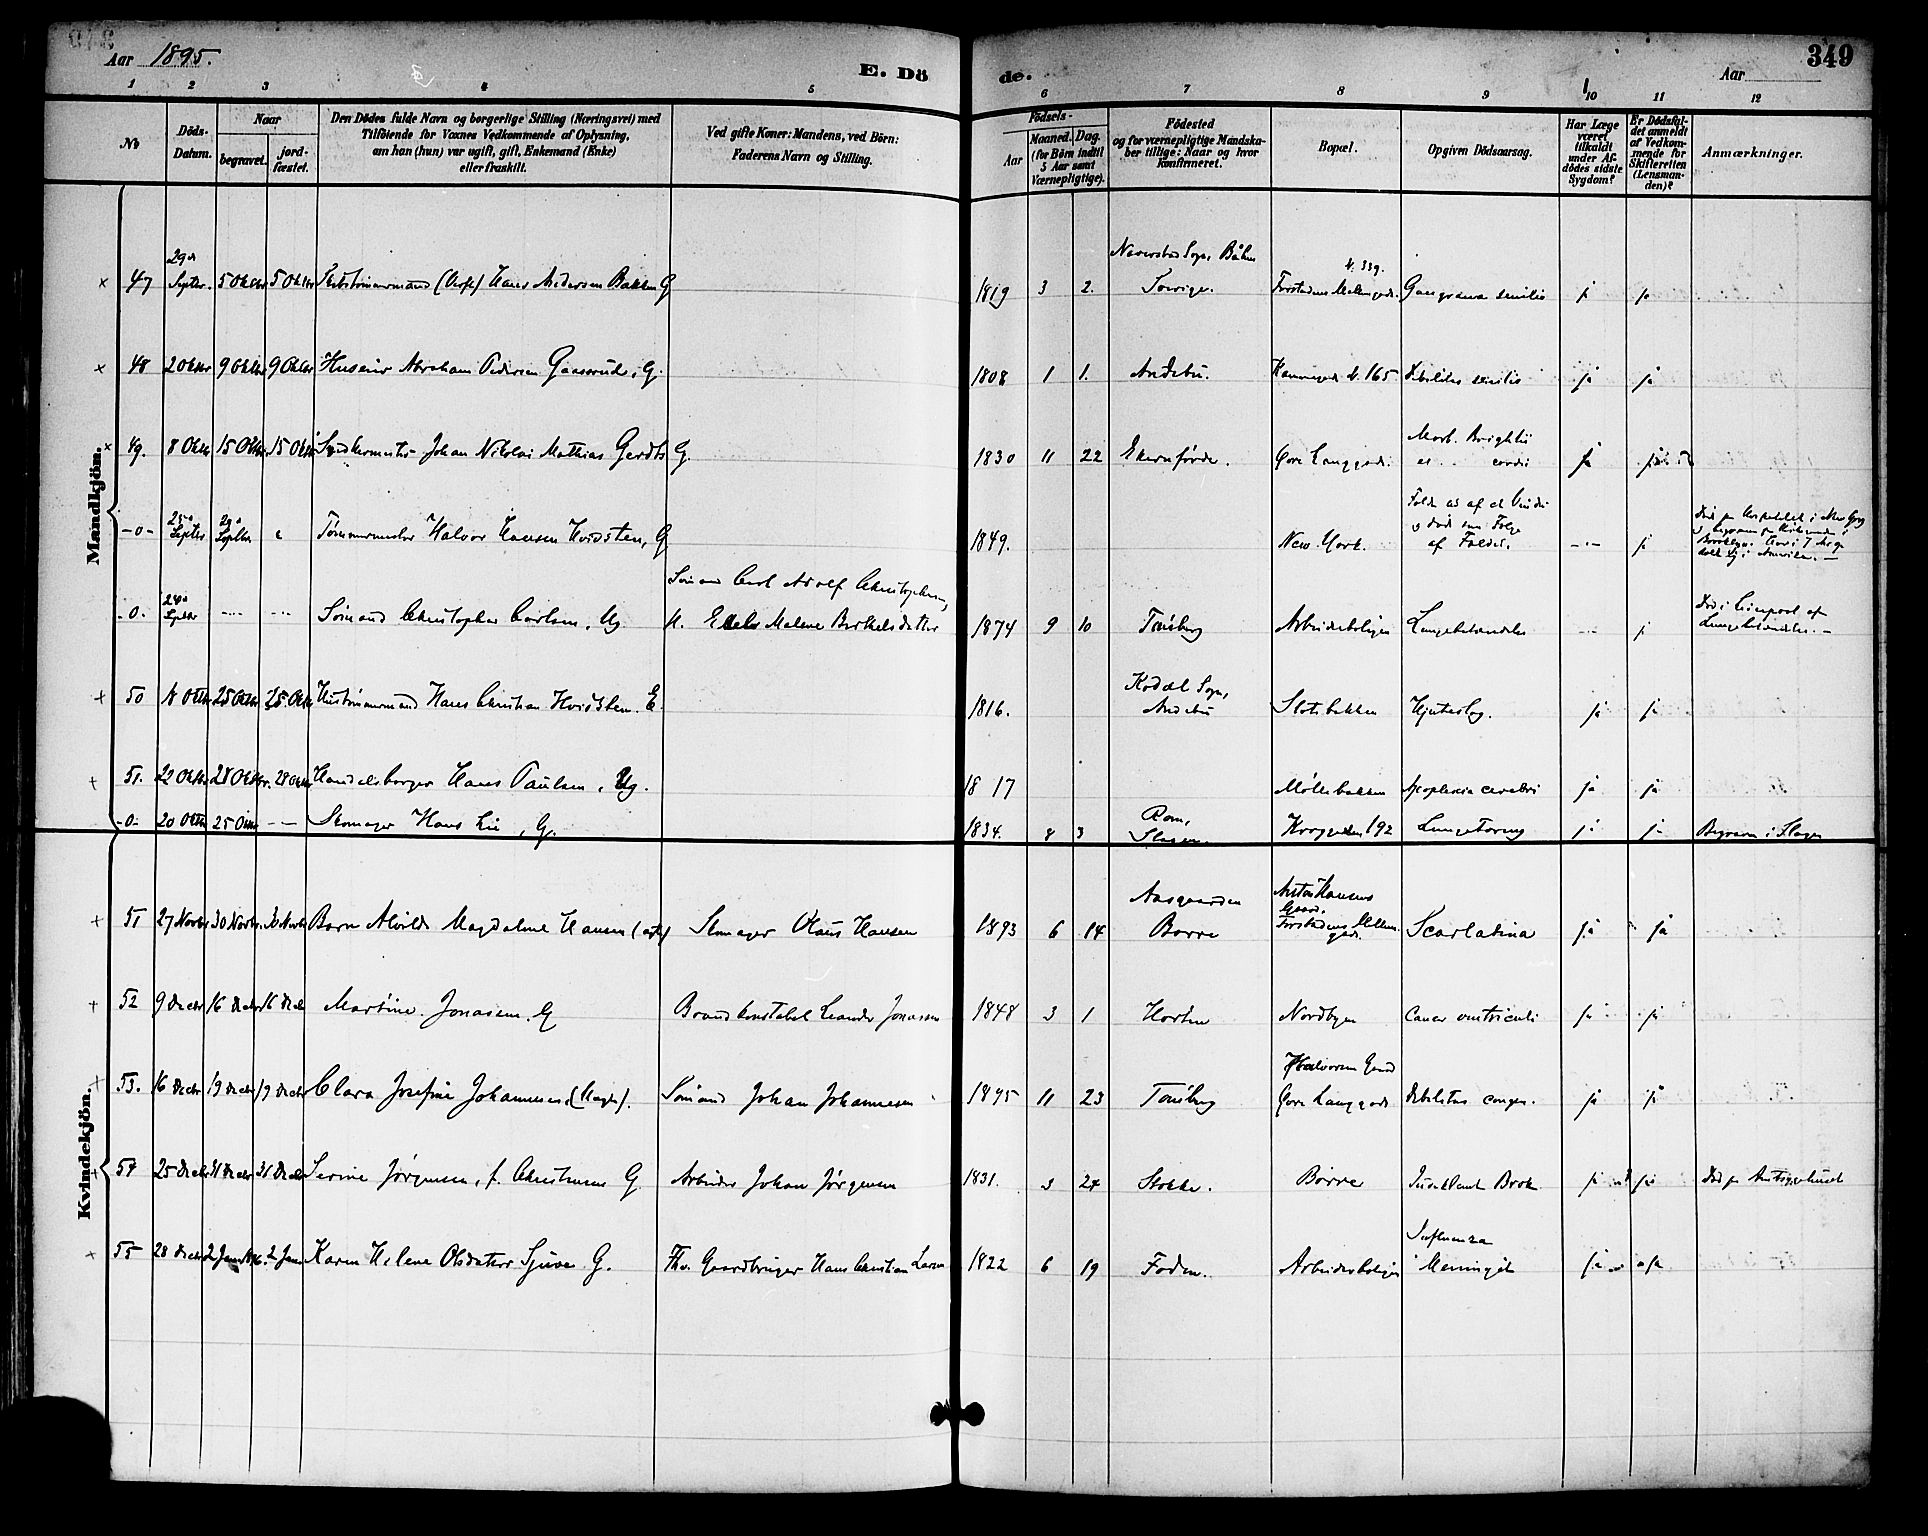 Aar 1895.
E. Dö
1 2 3 4 5
No
Döds-Datum.
Naar
begravet.
jord-fæstet.
Den Dödes fulde Navn og borgerlige Stilling (Næringsvei) med
Tilföiende for Voxnes Vedkommende af Oplysning,
om han (hun) var ugift, gift, Enkemand (Enke)
eller fraskilt.
Ved gifte Koner: Mandens, ved Börn:
Faderens Navn og Stilling.
de.
Aar
349
6 7 8 9 10 11 12
Födsels-
Aar
Maaned. Dag.
(for Börn indtil
5 Aar samt
Værnepligtige).
Födested
og for værnepligtige Mandska-
ber tillige: Naar og hvor
konfirmeret.
Bopæl.
Opgiven Dödsaarsag.
Har Læge
været
tilkaldt
under Af-
dödes sidste
Sygdom?
Er Dödsfal-
det anmeldt
af Vedkom-
mende for
Skifteretten
(Lensman-
den)?
Anmærkninger.
Mandkjön.
47 29de Septbr. 5 Oktbr 5 Oktbr Hans Andersen Bakken G 1819 3 2. Sogn Sverige. N. 339. Gangræna senilis ja ja
48 2 Oktbr 9 Oktbr 9 Oktbr Abraham Pedersen Gaasrud, G. 1808 1 1. Andebu. N. 165 Debilitas senilis ja ja
49. 8 Oktbr 15 Oktbr 15 Oktbr Snedkermester Johan Nikolai Mathias Gerdts G. 1830 11 22 Ekernförde. Øvre Langgade. Morb. Brightii et cordis ja ja
-0- 25de Septbr 29de Septbr Tømmermester Halvor Hansen Hvidsten, G 1849. New York. af Faldet. -"- ja
-0- 24de Septbr --- --- Sömand Christopher Carlsen, Ug Sömand Carl Adolf Christophersen, Malene Bertelsdatter 1874 9 10 Tönsberg Arbeiderboligen Lungebetændelse --- ja Död i Liverpool af Lungebetændelse.
50 25 Oktbr 25 Oktbr Hans Christian Hvidsten. E. 1816. Kodal Sogn, Andebu Slotsbakken Hjerteslag. ja ja
51. 22 Oktbr 28 Oktbr. 28 Oktbr Handelsborger Hans Paulsen, Ug. 1817 Møllebakken Apoplexia cerebri ja ja
-0- 20 Oktbr 25 Oktbr -- Skomager Hans Lie, G. 1834. 8 3 Rom, Slagen. 192 Lungetæring ja ja Begravn i Slagen
Kvindekjön.
51 27 Novbr 30 Novbr. 30 Novbr Barn Alvilde Magdalene Hansen Skomager Hans Hansen 1893 6 14 Aasgaarden Borre Gaard. Scarlatina ja ja
52 9 Decbr 16 Decbr 16 Decbr Martine Jonasen. G Brandkonstabel Leander Jonassen 1848 3 1 Horten Nordbyen Cancer ventriculi ja ja
53. 16 Decbr 19 Decbr 19 Decbr Clara Josefine Johannesen Sömand Johan Johannesen 1895 11 23 Tönsberg Halvorsens Gaard Øvre Langgade Debilitas congen. ja ja
54 25 Decbr 31 Decbr 31 Decbr Serine Jørgensen, f. Christensen G Arbeider Johan Jørgensen 1831. 3 24 Stokke. Borre Indeklemt Brok ja ja Död paa Amtssygehuset
55 28 Decbr 2 Jan 1896. 2 Jan Karen Helene Olsdatter G. Fhv. Gaardbruger Hans Christian Larsen 1822 6 19 Arbeiderboligen Influenza Meningit ja ja